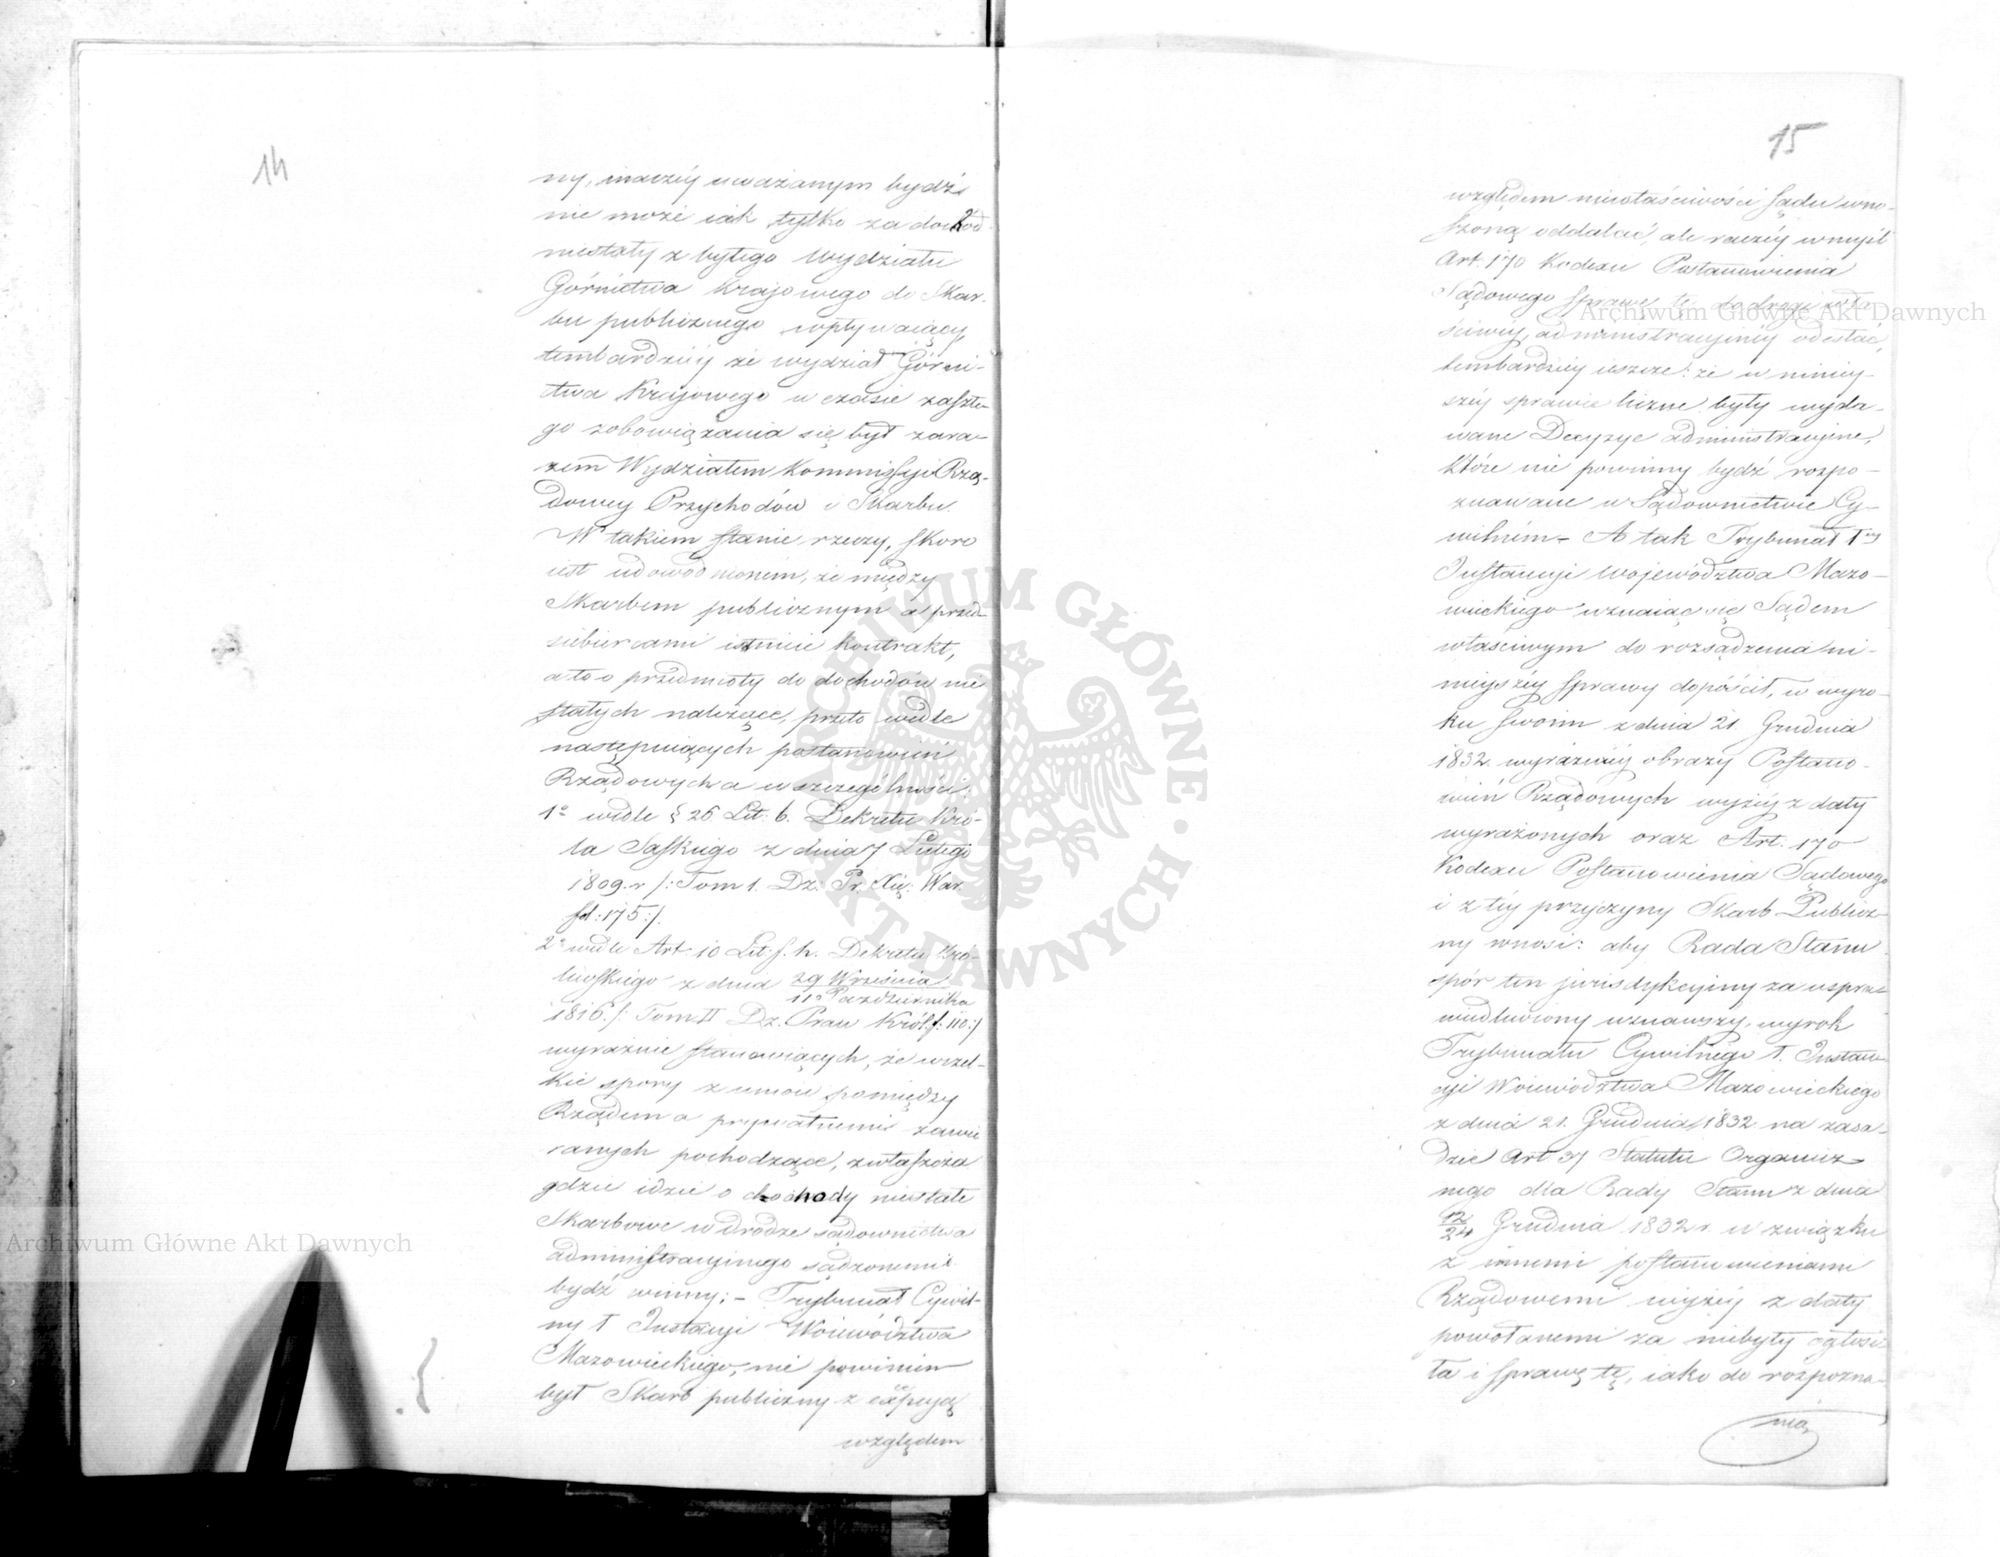 14
ny, inaczéy uważanym bydź
nie może iak tylko za dochod
niestały z byłego Wydziału
Górnictwa Krajowego do Skar-
bu publicznego wpływaiący
tembardziéy że wydział Górni-
ctwa Krajowego w czasie zaszłe-
go zobowiązania się był zara-
zem Wydziałem Kommissyi Rzą-
dowey Przychodów i Skarbu.
W takiem stanie rzeczy, skoro
iest udowodnionem, że między
Skarbem publicznym a przed-
siebiercami istnieie kontrakt,
a to o przedmioty do dochodów nie
stałych należące, przeto wedle
następuiących postanowień
Rządowych a w szczególności:
1o wedle § 26 Lit: b. Dekretu Kró-
la Saskiego z dnia 7 Lutego
1809. r /: Tom 1. Dz: Pr. Xię: War.
fol: 175 :/.
2o wedle Art. 10 Lit: f. h. Dekretu Kró-
lewskiego z dnia 29 Września
11o Października
1816. /: Tom II Dz. Praw Król: f: 110 :/
wyraźnie stanowiących, że wszel-
kie spory z umów pomiędzy
Rządem a prywatnemi zawie
ranych pochodzące, zwłaszcza
gdzie idzie o dochody niestałe
Skarbowe w drodze sądownictwa
administracyinego sądzonemi
bydź winny; – Trybunał Cywil-
ny 1 Instancyi Województwa
Mazowieckiego, nie powinien
był Skarb publiczny z excepcyą
względem
15
względem niewłaściwości Sądu wno-
szoną oddalać, ale raczéy w myśl
Art. 170 Kodexu Postanowienia
Sądowego sprawę tę do drogi wła-
ściwéy administracyinéy odesłać,
tembardziéy ieszcze: że w niniéy-
széy sprawie liczne były wyda-
wane Decyzye administracyine,
które nie powinny bydź rozpo-
znawane w Sądownictwie Cy-
wilném – A tak Trybunał 1éy
Instancyi Województwa Mazo-
wieckiego uznaiąc się Sądem
właściwym do rozsądzenia ni-
niéyszéy sprawy dopóścił, w wyro-
ku swoim z dnia 21. Grudnia
1832. wyraźnéy obrazy Postano-
wień Rządowych wyżéy z daty
wyrażonych oraz Art. 170
Kodexu Postanowienia Sądowego
i z téy przyczyny Skarb Publicz-
ny wnosi: aby Rada Stanu
spór ten jurisdykcyiny za uspra-
wiedliwiony uznawszy, wyrok
Trybunału Cywilnego 1. Instan-
cyi Województwa Mazowieckiego
z dnia 21. Grudnia 1832 na zasa-
dzie Art 37 Statutu Organicz-
nego dla Rady Stanu z dnia
12/24 Grudnia 1832 r. w związku
z innemi postanowieniami
Rządowemi wyżéy z daty
powołanemi za niebyły ogłosi-
ła i sprawę tę, iako do rozpozna-
nia,
Archiwum Główne Akt Dawnych
Archiwum Główne Akt Dawnych
ARCHIWUM GŁÓWNE · AKT DAWNYCH ·